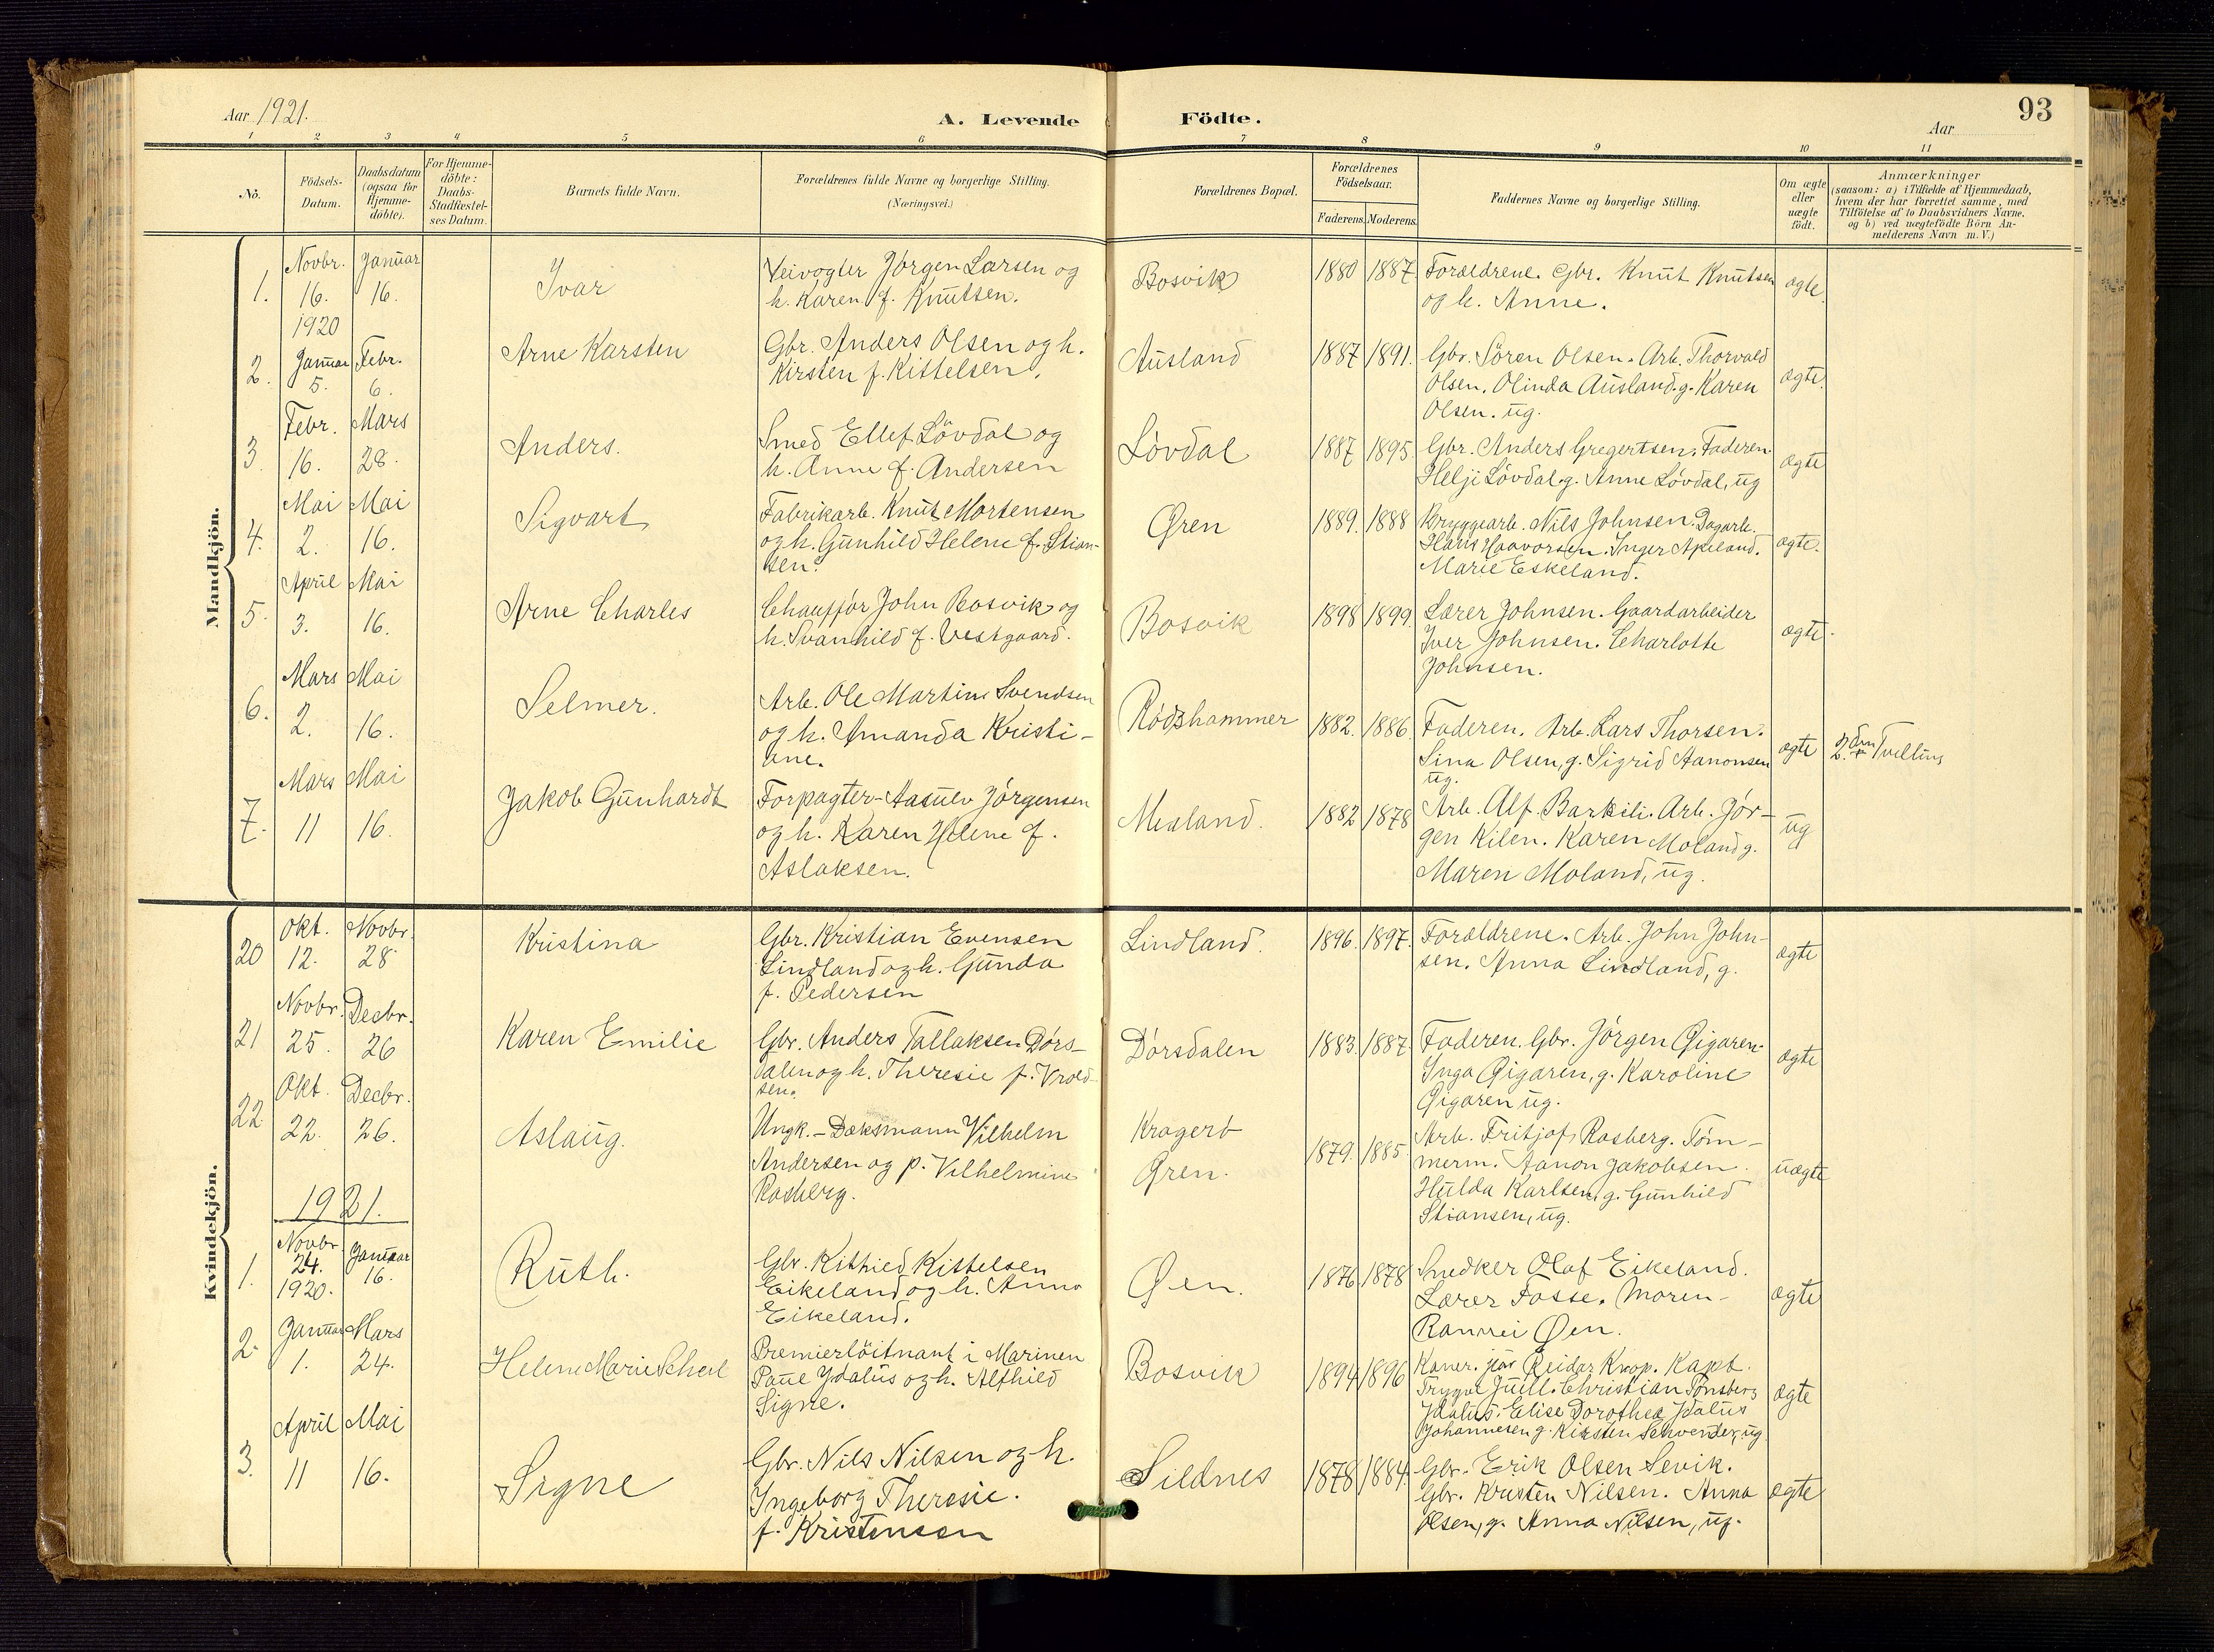 Aar 1921.
A. Levende Födte.
Aar
93
1 2 3 4 5 6 7 8 9 10 11
No.
Födsels-Datum.
Daabsdatum (ogsaa for Hjemme-döbte).
For Hjemme-döbte: Daabs-Stadfæstel-ses Datum.
Barnets fulde Navn.
Forældrenes fulde Navne og borgerlige Stilling.
(Næringsvei.)
Forældrenes Bopæl.
Forældrenes Födselsaar.
Faderens. Moderens.
Faddernes Navne og borgerlige Stilling.
Om ægte eller uægte födt.
Anmærkninger
(saasom: a) i Tilfælde af Hjemmedaab,
hvem der har forrettet samme, med
Tilföielse af to Daabsvidners Navne.
og b) ved uægtefödte Börn An-
melderens Navn m. V.)
Mandkjön.
1. Novbr. 16. 1920 Januar 16. Ivar
Veivogter Jørgen Larsen og
h. Karen f. Knutsen.
Bosvik 1880 1887
Forældrene. Gbr. Knut Knutsen
og h. Anne.
ægte.
2. Januar 5. Febr. 6. Arne Karsten
Gbr. Anders Olsen og h.
Kirsten f. Kittelsen.
Ausland 1887 1891.
Gbr. Sören Olsen. Arb. Thorvald
Olsen. Olinda Ausland. g. Karen
Olsen. ug.
ægte.
3. Febr. 16. Mars 28. Anders.
Smed Ellef Lövdal og
h. Anne f. Andersen
Lövdal 1887 1895.
Gbr. Anders Gregertsen. Faderen.
Helji Lövdal. g. Anne Lövdal, ug
ægte
4. Mai 2. Mai 16. Sigvart
Fabrikarb. Knut Mortensen
og h. Gunhild Helene f. Stian-
sen.
Øren 1889. 1888
Bryggearb. Nils Johnsen. Dagarb.
Hans Haavorsen. Inger Apeland.
Marie Eskeland.
ægte.
5. April 3. Mai 16. Arne Charles
Chauffør John Bosvik og
h. Svanhild f. Vestgaard.
Bosvik 1898 1899.
Lærer Johnsen. Gaardarbeider
Iver Johnsen. Charlotte
Johnsen.
ægte.
6. Mars 2. Mai 16. Selmer.
Arb. Ole Martin Svendsen
og h. Amanda Kristi-
ane.
Rødshammer 1882. 1886.
Faderen. Arb. Lars Thorsen.
Sina Olsen, g. Sigrid Aanonsen
ug.
ægte
2. Tvelling
7. Mars 11 Mai 16. Jakob Gunhardt
Forpagter Aasulv Jørgensen
og h. Karen Helene f.
Aslaksen.
Mealand. 1882 1878
Arb. Alf. Barkili. Arb. Jör-
gen Kilen. Karen Moland g.
Maren Moland, ug.
ug
Kvindekjön.
20 Okt. 12. Novbr. 28 Kristina
Gbr. Kristian Evensen
Lindland og h. Gunda
f. Pedersen
Lindland. 1896. 1897.
Forældrene. Arb. John John-
sen. Anna Lindland, g.
ægte
21 Novbr. 25. Decbr. 26 Karen Emilie
Gbr. Anders Tallaksen Dørs-
dalen og h. Theresie f. Vrold-
sen.
Dørsdalen 1883. 1887.
Faderen. Gbr. Jørgen Øigaren
Inga Øigaren, g. Karoline
Øigaren ug.
ægte
22 Okt. 22. Decbr. 26. Aslaug.
Ungk. - Dæksmann Vilhelm
Andersen og p. Vilhelmine
Rosberg.
Kragerö
Øren.
1879. 1885.
Arb. Fritjof Rosberg. Tøm-
merm. Aanon Jakobsen.
Hulda Karlsen, g. Gunhild
Stiansen, ug.
uægte
1921.
1. Novbr. 24. 1920. Januar 16. Ruth.
Gbr. Kittel Kittelsen
Eikeland og h. Anna
Eikeland.
Øen. 1876. 1878
Snedker Olaf Eikeland.
Lærer Fosse. Moren.
Øen.
ægte
2. Januar 1. Mars 24. Helene Marie
Premierløitnant i Marinen
Paul Ydalus og h. Alfhild
Signe.
Bosvik 1894 1896
Reidar Knop. Kapt.
Trygve Juell. Christian Tønsberg
Ydalus. Elise Dorothea Ydalus
Johannesen g. Kirsten ug
ægte
3. April 11 Mai 16. Signe
Gbr. Nils Nilsen og h.
Ingeborg Theresie.
f. Kristensen
Sildnes 1878 1884.
Gbr. Erik Olsen Sevik.
Gbr. Kristen Nilsen. Anna
Olsen, g. Anna Nilsen, ug.
ægte